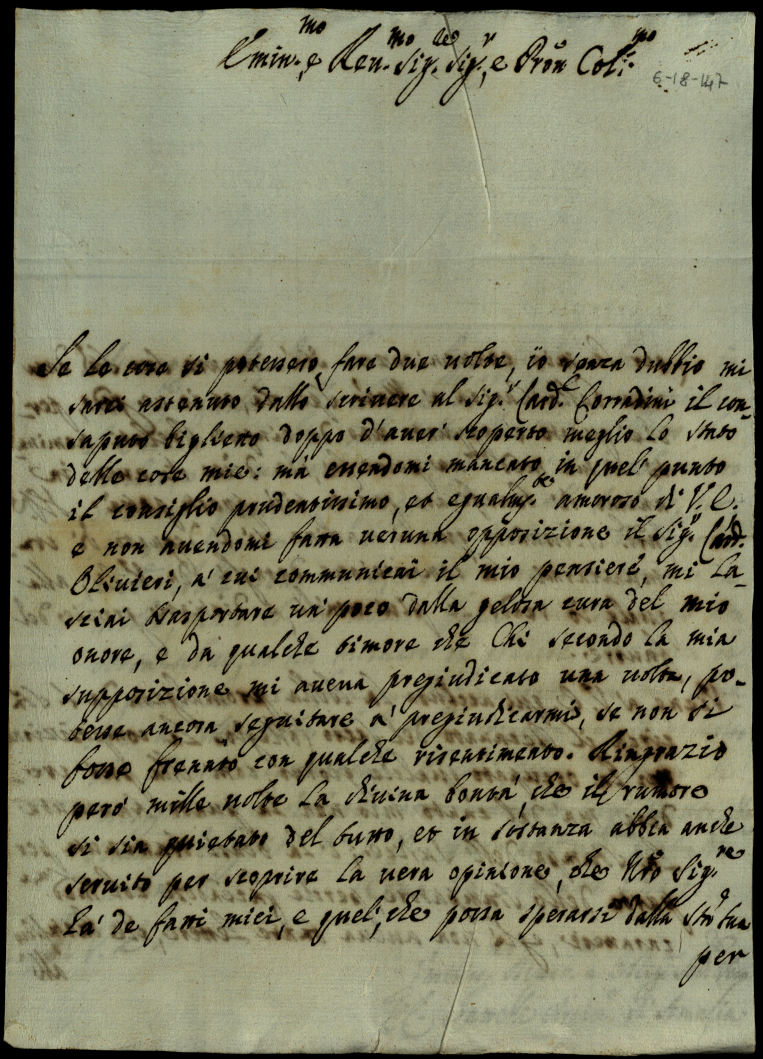 Emin.mo e Reu.mo Sig.r Sig.r, e Pron Col.mo
6-18-147
Se le cose si potessero fare due uolte, io senza dubbio mi
sarei astenuto dallo scriuere al Sig.r Card.e Corradini il con-
saputo biglietto doppo d'auer' scoperto meglio lo stato
delle cose mie: mà essendomi mancato in quel punto
il consiglio prudentissimo, et egualm.te amoroso di V.E.
e non auendomi fatta ueruna opposizione il Sig.r Card.
Oliuieri, à cui communicai il mio pensiere, mi la-
sciai trasportare un' poco dalla gelosa cura del mio
onore, e da qualche timore che Chi secondo la mia
supposizione mi aueua pregiudicato una uolta, po-
tesse ancora seguitare à pregiudicarmi, se non si
fosse frenato con qualche risentimento. Ringrazio
però mille uolte la diuina bontà, che il rumore
si sia quietato del tutto, et in sostanza abbia anche
seruito per scoprire la uera opinione, che Nro Sig.re
hà de fatti miei, e quel, che possa sperarsi dalla Stà sua
per